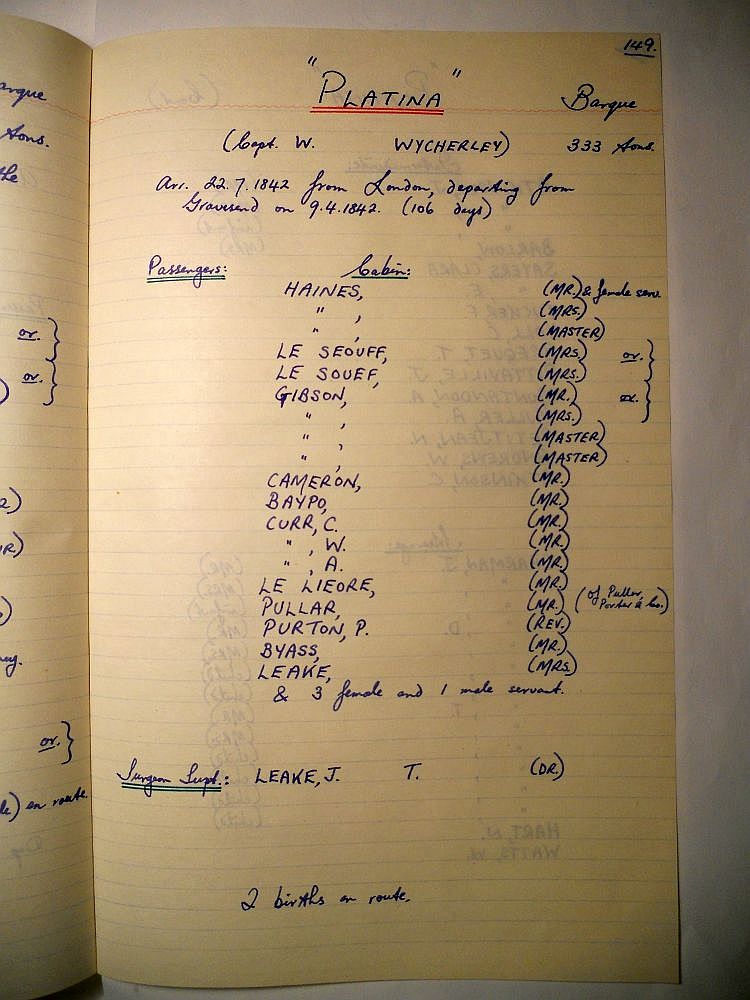 149.
"PLATINA" Barque
(Capt. W. WYCHERLEY) 333 tons.
Arr. 22.7.1842 from London, departing from
Gravesend on 9.4.1842. (106 days)
Passengers: Cabin:
HAINES, (MR.) & female serv.
" , (MRS.)
" , (MASTER)
LE SEOUFF, (MRS.) or. }
LE SOUEF, (MRS.)
GIBSON, (MR.) or. }
" , (MRS.)
" , (MASTER)
" , (MASTER)
CAMERON, (MR.)
BAYPO, (MR.)
CURR, C. (MR.)
" , W. (MR.)
" , A. (MR.)
LE LIEORE, (MR.)
PULLAR, (MR.) (of Pullar, Porter & Co.)
PURTON, P. (REV.)
BYASS, (MR.)
LEAKE, (MRS.)
& 3 female and 1 male servant.
Surgeon Supt.: LEAKE, J. T. (DR.)
2 births en route.